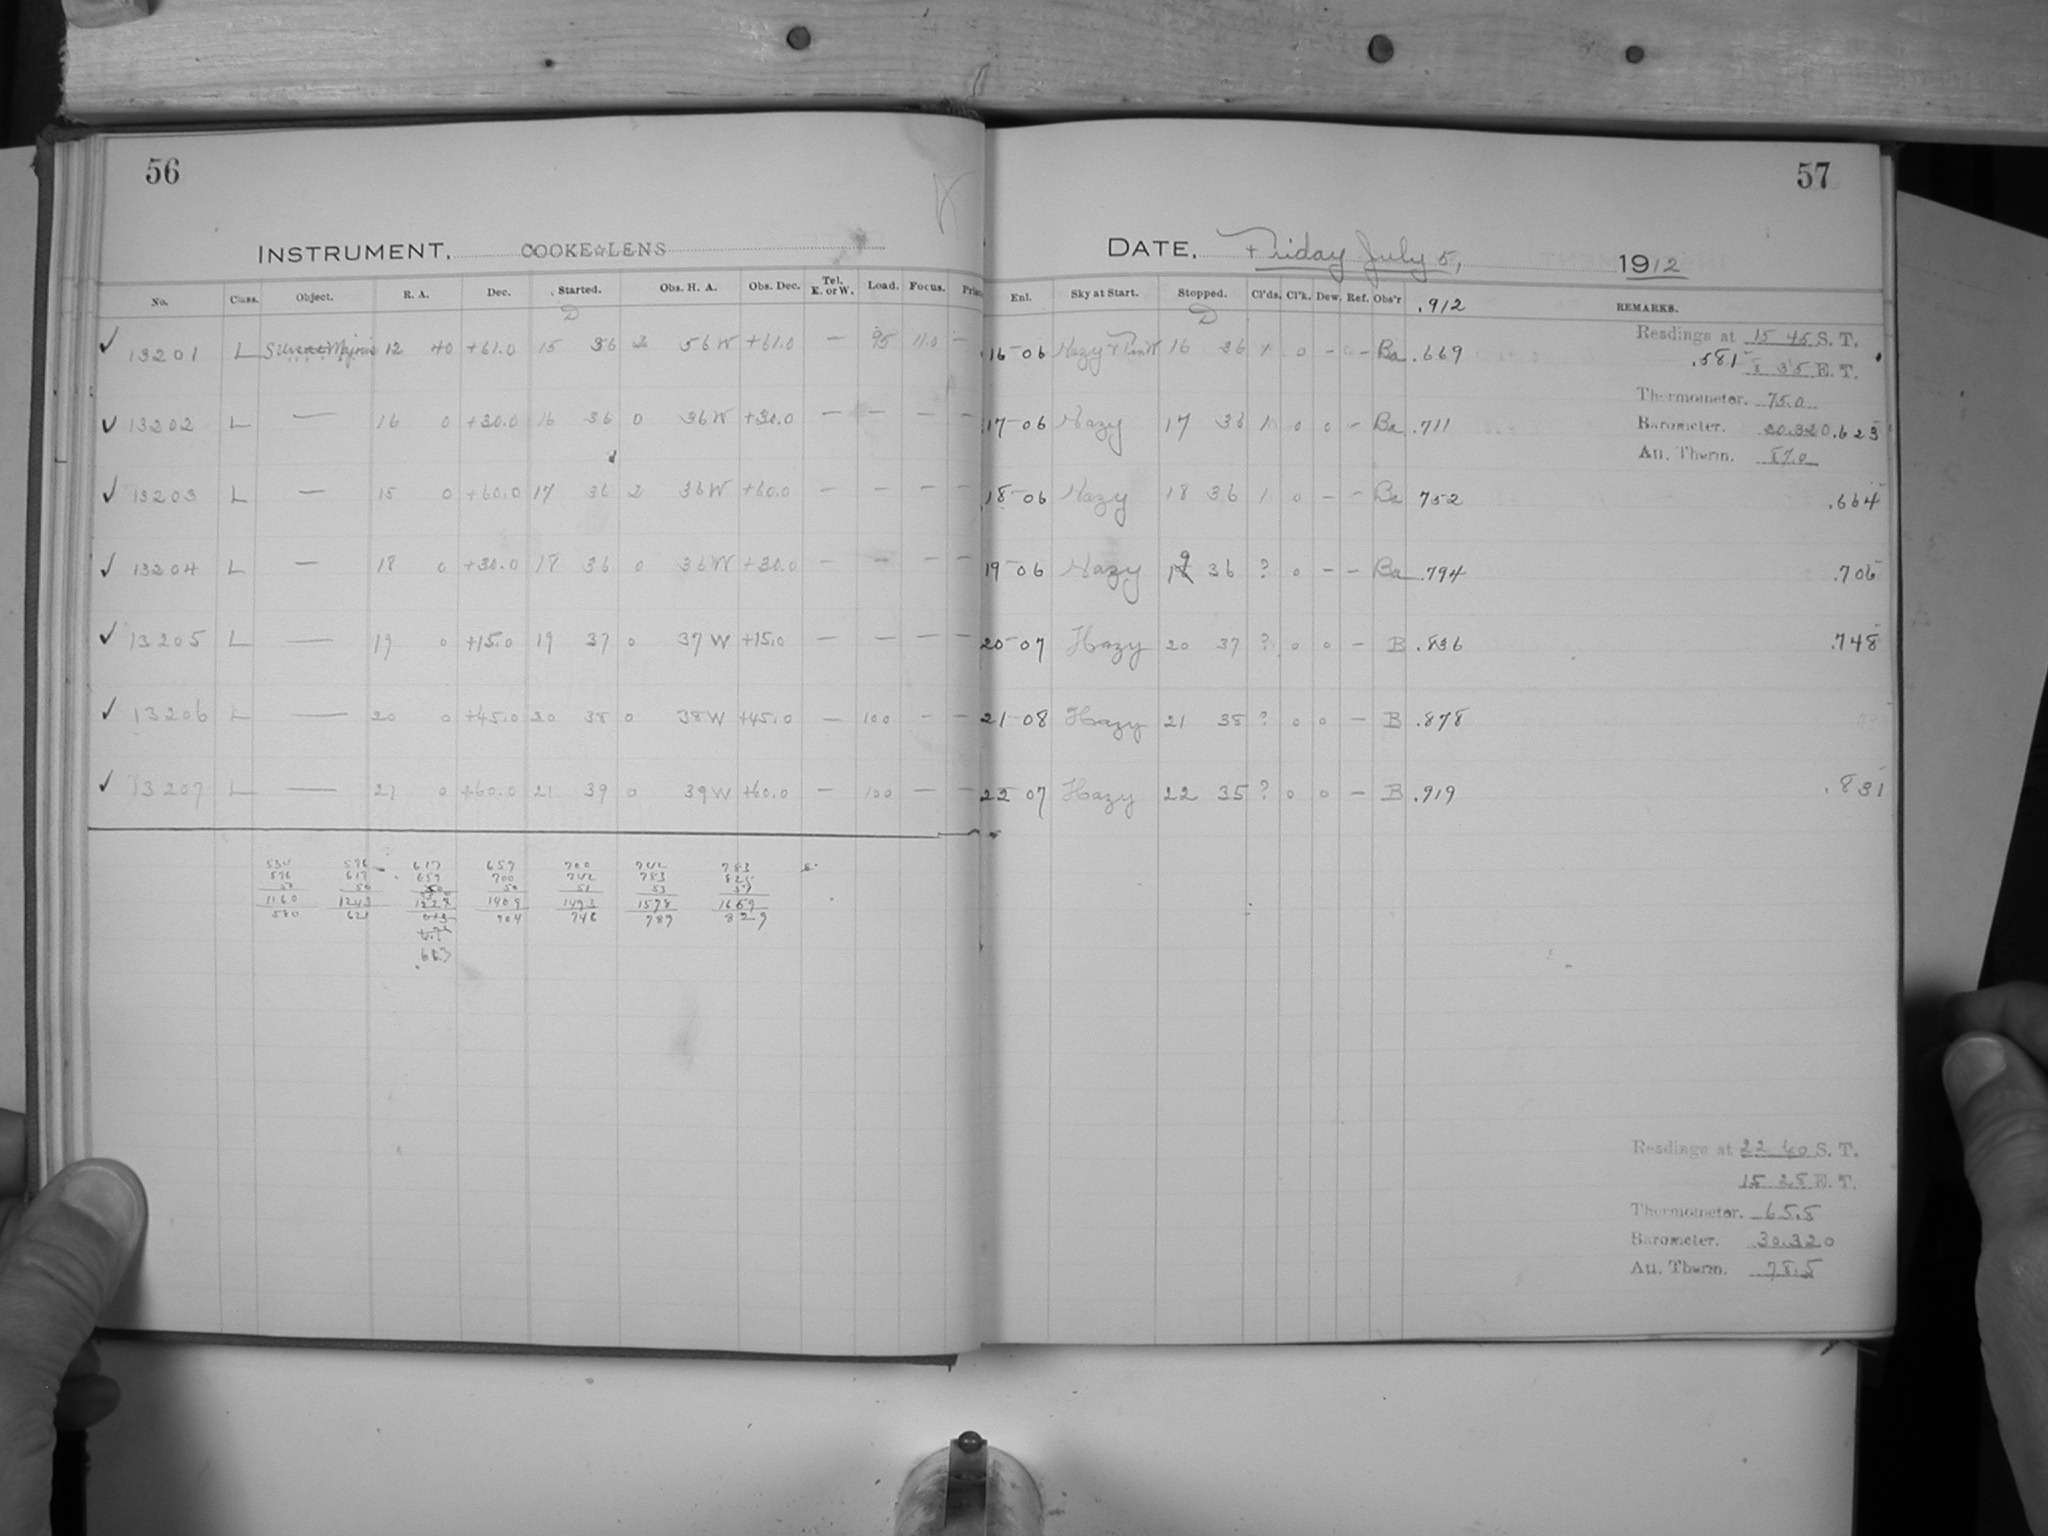 56
INSTRUMENT. COOKE☆LENS
No. Class. Object. R. A. Dec. Started. Obs. H. A. Obs. Dec. Tel. E. or W. Load. Focus.
D
✓ 13201 L Majoris 12 40 +61.0 15 36 2 56 W +61.0 — 95 11.0 —
✓ 13202 L — 16 0 +30.0 16 36 0 36 W +30.0 — — — —
✓ 13203 L — 15 0 +60.0 17 36 2 36 W +60.0 — — — —
✓ 13204 L — 18 0 +30.0 18 36 0 36 W +30.0 — — — —
✓ 13205 L — 19 0 +15.0 19 37 0 37 W +15.0 — — — —
✓ 13206 L — 20 0 +45.0 20 38 0 38 W +45.0 — 100 — —
✓ 13207 L — 21 0 +60.0 21 39 0 39 W +60.0 — 100 — —
617 659 700 742 783
659 700 742 783
50 50 51 53
1160 1243 1409 1493 1578 1659
580 621 704 746 789 829
663
57
DATE. Friday July 5, 1912
Enl. Sky at Start. Stopped. Cl'ds. Cl'k. Dew. Ref. Obs'r .912 REMARKS.
D
16-06 Hazy 16 36 0 - - Ba .669
17-06 Hazy 17 36 1 0 0 - Ba .711
18-06 Hazy 18 36 1 0 - - Ba .752 .664
19-06 Hazy 19 36 ? 0 - - Ba .794 .706
20-07 Hazy 20 37 ? 0 0 - B .836 .748
21-08 Hazy 21 38 ? 0 0 - B .878
22-07 Hazy 22 35 ? 0 0 - B .919 .831
Readings at 15 45 S. T.
.581 8 35 E. T.
Thermometer. 75.0
Barometer. 30.320 .623
Att. Therm. 87.0
Readings at 22 40 S. T.
15 28 E. T.
Thermometer. 65.5
Barometer. 30.320
Att. Therm. 78.5